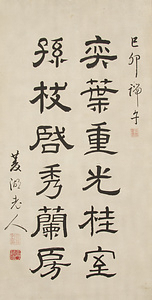 己卯端午
奕葉重光桂室
孫枝啓秀蘭房
菱湖老人